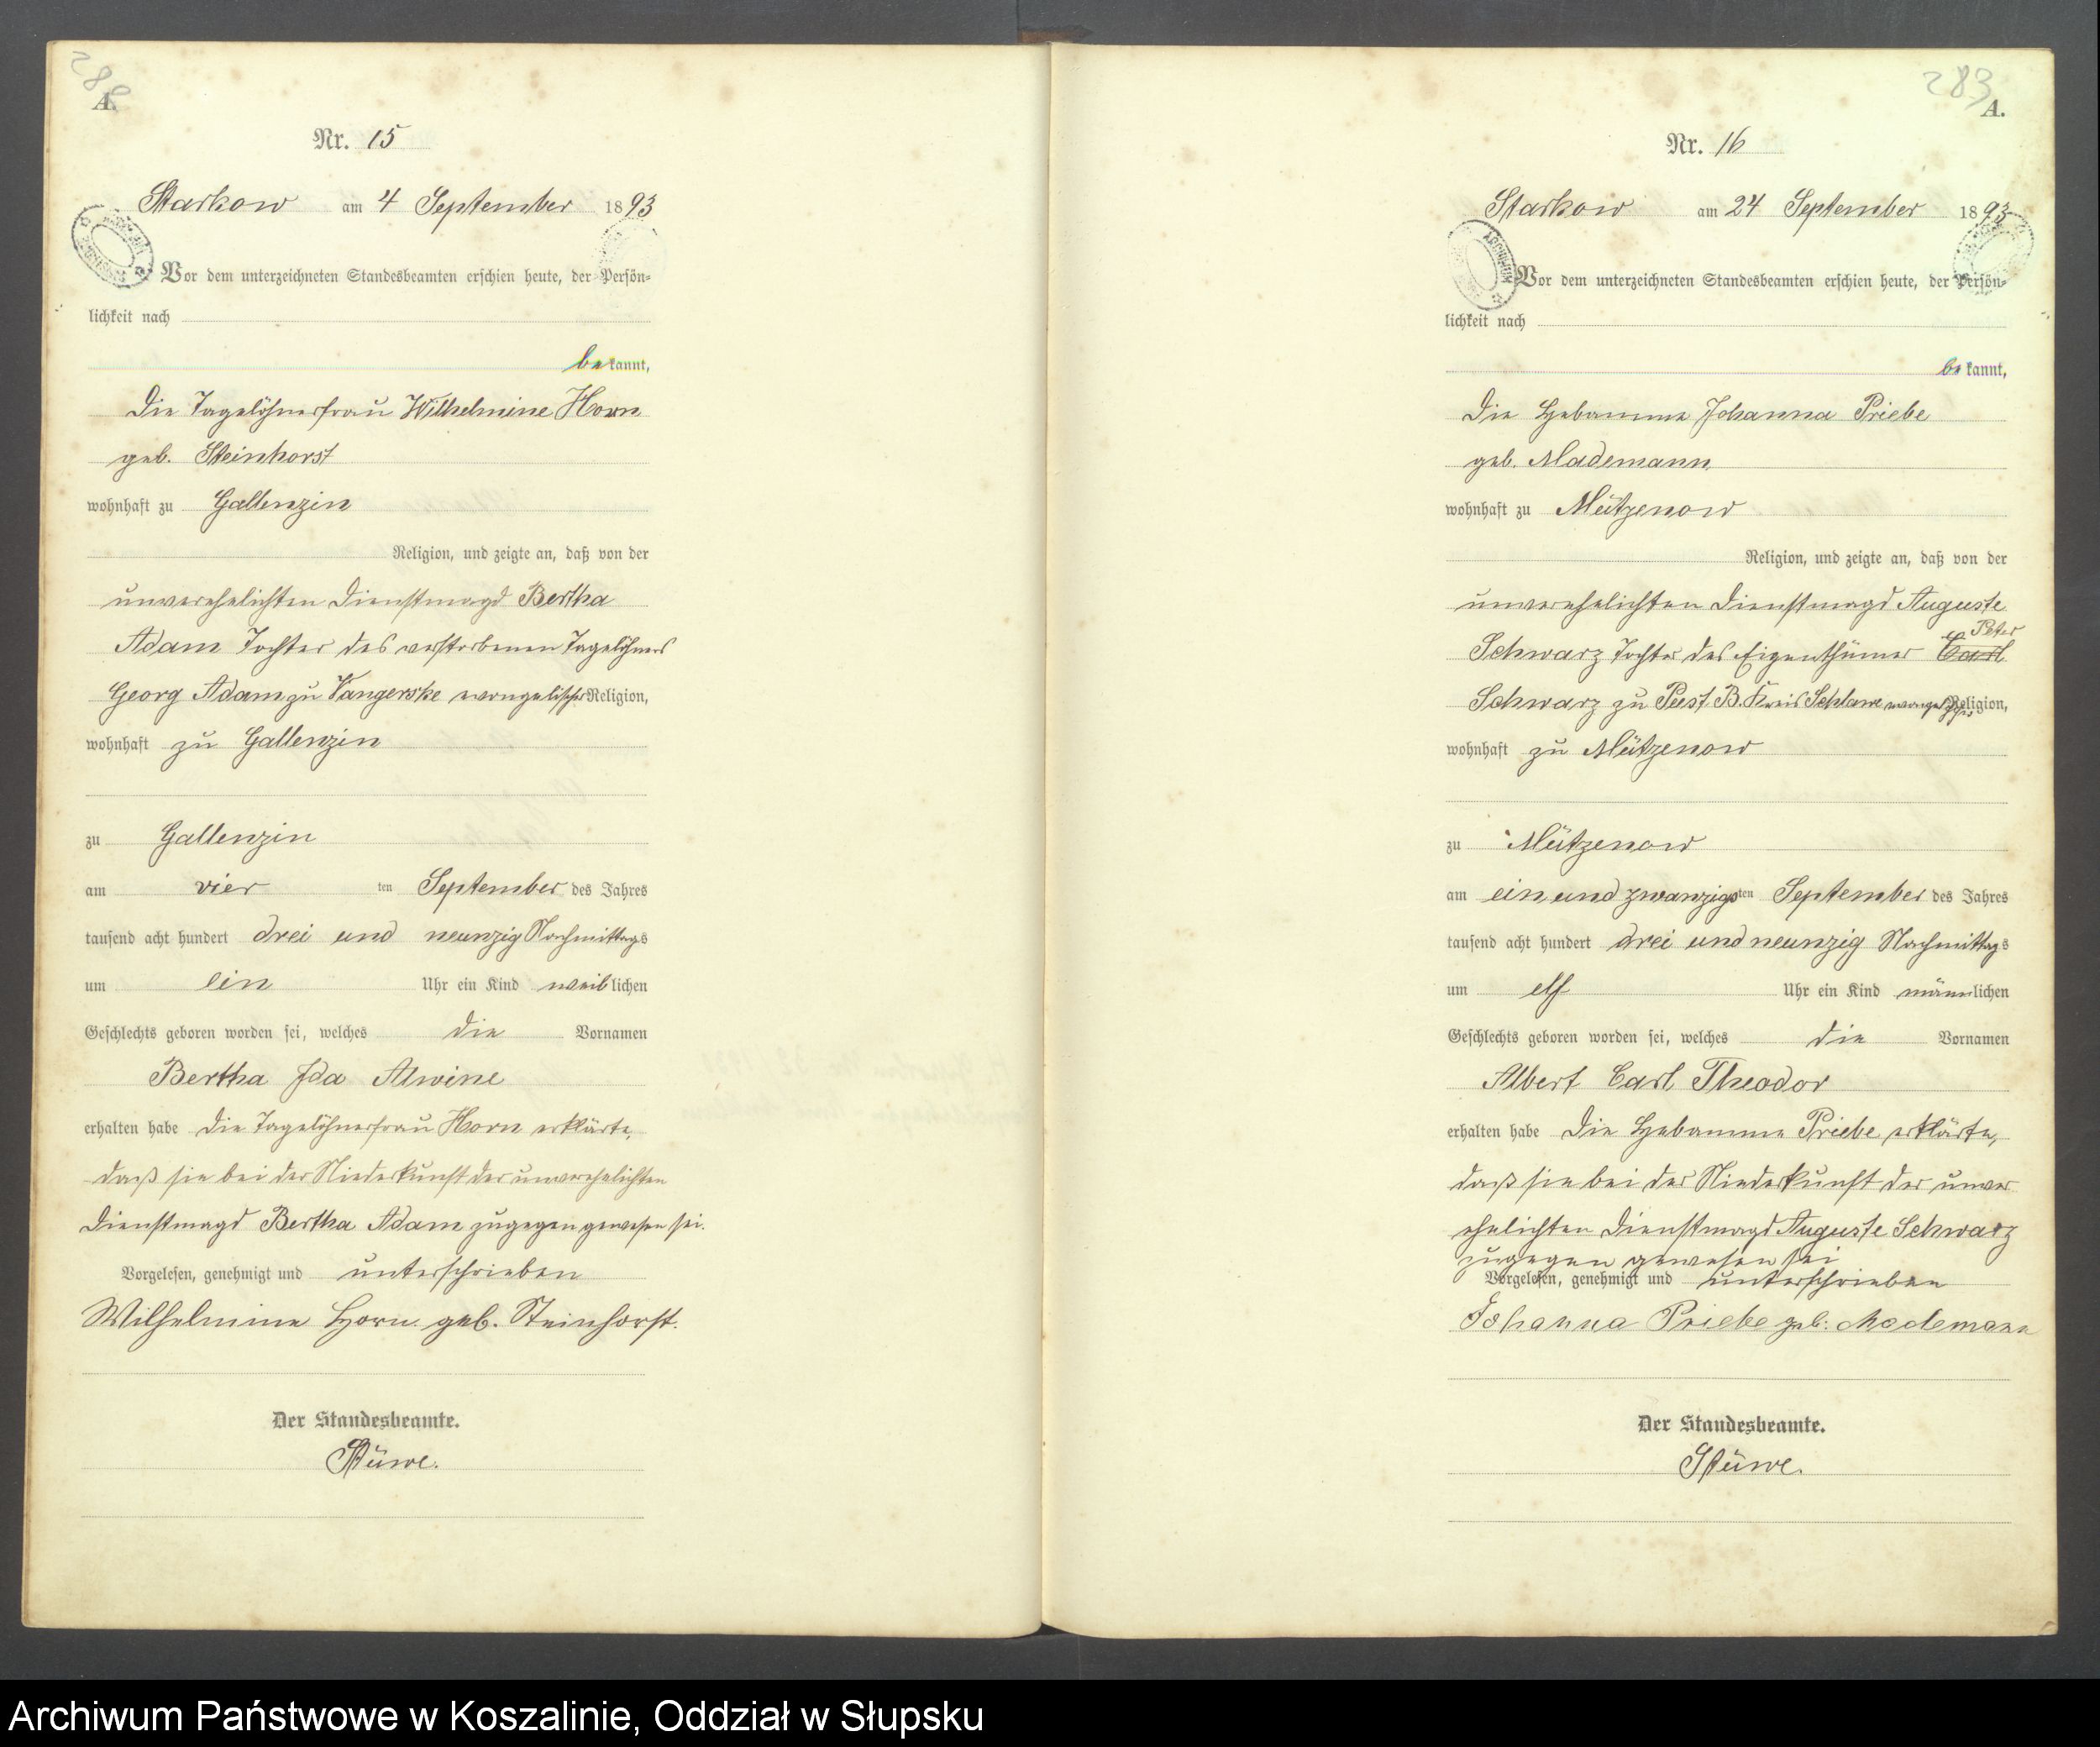 282
A.
Nr. 15
Starkow am 4 September 1893
Vor dem unterzeichneten Standesbeamten erschien heute, der Persön-
lichkeit nach
bekannt,
die Tagelöhnerfrau Wilhelmine Horn
geb. Steinhorst
wohnhaft zu Gallenzin
Religion, und zeigte an, daß von der
unverehelichten Dienstmagd Bertha
Adam Tochter des verstorbenen Tagelöhners
Georg Adam zu Vangerske evangelischer Religion,
wohnhaft zu Gallenzin
zu Gallenzin
am vier ten September des Jahres
tausend acht hundert drei und neunzig Nachmittags
um ein Uhr ein Kind weiblichen
Geschlechts geboren worden sei, welches die Vornamen
Bertha Ida Alwine
erhalten habe die Tagelöhnerfrau Horn erklärte,
daß sie bei der Niederkunft der unverehelichten
Dienstmagd Bertha Adam zugegen gewesen sei.
Vorgelesen, genehmigt und unterschrieben
Wilhelmine Horn geb. Steinhorst.
Der Standesbeamte.
Stüwe.
283
A.
Nr. 16
Starkow am 24 September 1893
Vor dem unterzeichneten Standesbeamten erschien heute, der Persön-
lichkeit nach
bekannt,
die Hebamme Johanna Priebe
geb. Mademann
wohnhaft zu Mützenow
Religion, und zeigte an, daß von der
unverehelichten Dienstmagd Auguste
Peter
Schwarz Tochter des Eigenthümer Carl
Schwarz zu Peest B. Kreis Schlawe evangelischer Religion,
wohnhaft zu Mützenow
zu Mützenow
am ein und zwanzigsten September des Jahres
tausend acht hundert drei und neunzig Nachmittags
um elf Uhr ein Kind männlichen
Geschlechts geboren worden sei, welches die Vornamen
Albert Carl Theodor
erhalten habe die Hebamme Priebe erklärte,
daß sie bei der Niederkunft der unver
ehelichten Dienstmagd Auguste Schwarz
zugegen gewesen sei
Vorgelesen, genehmigt und unterschrieben
Johanna Priebe geb: Mademann
Der Standesbeamte.
Stüwe.
Archiwum Państwowe w Koszalinie, Oddział w Słupsku